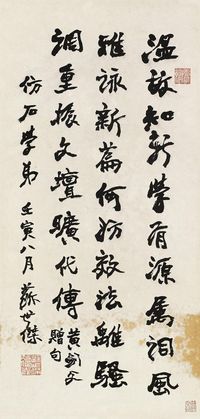 温故知新学有源属词风
雅咏新篇何妨效法离骚
调重振文坛旷代传 黄剑文
赠句
仿石学弟 壬寅八月 苏世杰